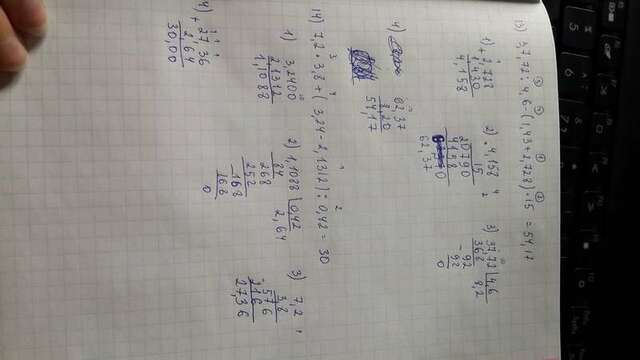 13) 37,72 : 4,6 - (1,43 + 2,728) · 15 = 54,17
1) + 2,728
1,430
4,158
2) · 4,158
15
20790
4158
62,370
3) 37,72 | 4,6
368 8,2
- 92
92
0
4)
62,37
8,20
54,17
14) 7,2 · 3,8 + (3,24 - 2,1312) : 0,42 = 30
1) 3,2400
2,1312
1,1088
2) 1,1088 | 0,42
84 2,64
268
252
- 168
168
0
3) 7,2
3,8
576
216
27,36
4) + 27,36
2,64
30,00